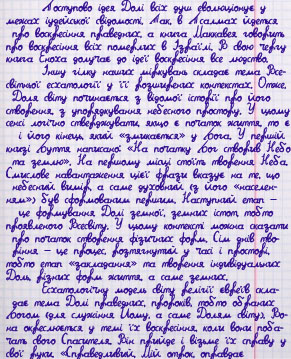 Поступово ідея Долі всіх душ еволюціонує у
межах іудейської свідомості. Так, в Псалмах йдеться
про воскресіння праведних, а книга Маккавеїв говорить
про воскресіння всіх померлих в Ізраїлі. В свою чергу
книга Єноха долучає до ідеї воскресіння все людство.
Іншу гілку наших міркувань складає тема Все-
світньої есхатології у її розширених контекстах. Отже,
Доля світу починається з відомої історії про його
створення, з упорядкування небесного простору. У цьому
сенсі логічно стверджувати, якщо є початок життя, то є
і його кінець, який «змикається» у Бога. У першій
книзі Буття написано: «На початку Бог створив Небо
та землю». На першому місці стоїть творення Неба.
Смислове навантаження цієї фрази вказує на те, що
небесний вимір, а саме духовний (з його «населен-
ням») був сформованим першим. Наступний етап –
це формування Долі земної, земних істот, тобто
проявленого Всесвіту. У цьому контексті можна сказати
про початок створення фізичних форм. Сім днів тво-
ріння – це процес, розтягнутий у часі і просторі,
тобто етап «закладання» та творення індивідуальних
Доль різних форм життя, а саме земних.
Есхатологічну модель світу релігії євреїв скла-
дає тема Долі праведних, пророків, тобто обраних
Богом для служіння Йому, а саме Долям світу. Во-
на окреслюється у темі їх воскресіння, коли вони поба-
чать свого Спасителя. Він прийде і візьме їх справу у
свої руки. «Справедливий, Мій отрок оправдає